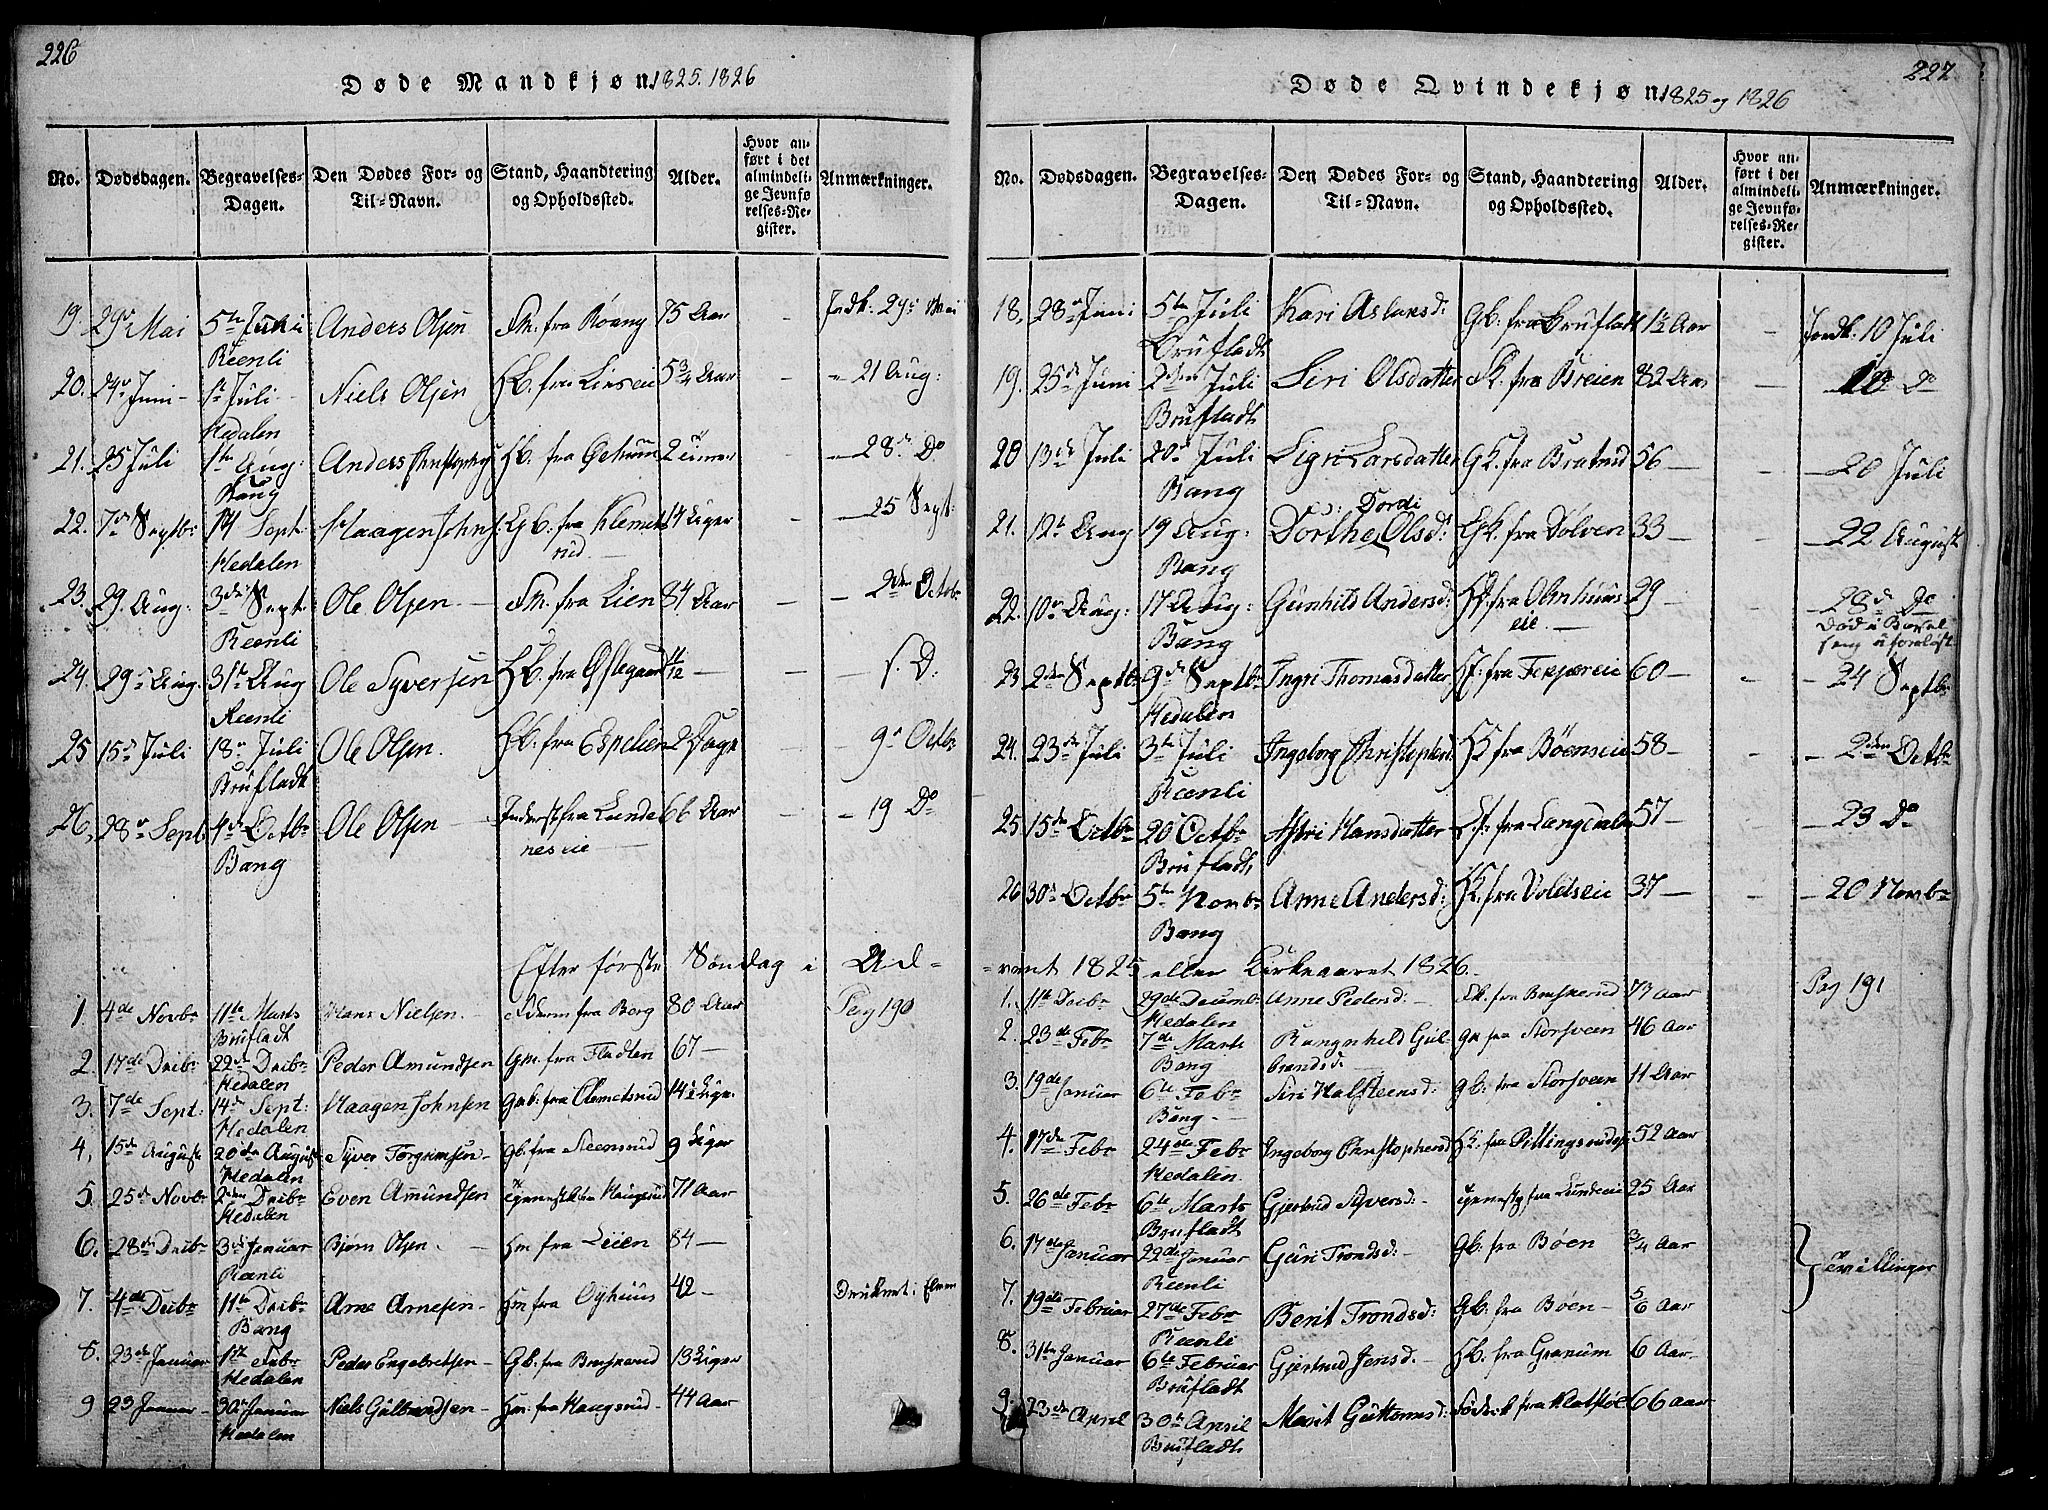 226
Døde Mandkjøn 1825. 1826
No. Dødsdagen. Begravelses-Dagen. Den Dødes For- og Til-Navn. Stand, Haandtering og Opholdssted. Alder. Hvor anført i det almindelige Jevnførelses-Register. Anmærkninger.
19. 29 Mai 5te Juni Anders Olsen Fm. fra Röang 75 Aar - Indb. 29 Mai
Reenli
20. 24 Juni 1 Juli Niels Olsen Hb. fra 5 3/4 Aar - 21 Aug:
Hedalen
21. 25 Juli 1te Aug: Anders Hb. fra 2 - 28 Do
Bang
22. 7de Septbr 14 Sept. Haagen Johns. Gb. fra Klemets 14 Uger - 25 Sept:
Hedalen rud
23. 29. Aug: 3de Sept Ole Olsen Fm. fra Lien 84 Aar - 2den Octbr
Reenli
24. 29 Aug. 31te Aug Ole Syversen Hb. fra Østegaard 11/12 - s. D:
Reenli
25 15de Juli 18 Juli Ole Olsen. Hb. fra Espelien 2 Dage - 9 Octbr
Brufladt
26. 28 Sept 4de Octbr Ole Olsen Inderst fra Lunde 66 Aar - 19 Do
Bang nes eie
Efter første Søndag i Ad-
1. 4de Novbr 11te Marts Hans Nielsen. fra Berg 80 Aar Pag 190
Brufladt
2. 17de Decbr 22de Decbr Peder Amundsen Gm. fra Fladten 67 -
Hedalen
3. 7de Sept: 14de Sept: Haagen Johnsen Gmb. fra Clemetsrud 14 1/2 Uge.
Hedalen
4, 15de August 20de August Syver Torgrimsen Gb. fra Steensrud 9 Uger
Hedalen
5. 25de Novbr 2den Decbr Even Amundsen fra Haugsrud 71 Aar
Hedalen
6. 28de Decbr 3de Januar Bjørn Olsen. Hm. fra Leien 84 -
Reenli
7. 4de Decbr 11te Decbr Arne Arnesen Hm. fra Oyhuus 42 - Druknet i
Bang
8. 23de Januar 1ste Febr Peder Engebretsen Gb. fra Bruskerud 13 Uger
Hedalen
9 23 Januar 30 Januar Niels Gulbrandsen Hm. fra Haugsrud 44 Aar
Hedalen
227
Døde Qvindekjøn 1825 og 1826
No. Dødsdagen. Begravelses-Dagen. Den Dødes For- og Til-Navn. Stand, Haandtering og Opholdssted. Alder. Hvor anført i det almindelige Jevnførelses-Register. Anmærkninger.
18, 28 Juni 5te Juli Kari Aslaksd: Gb. fra Brufladt 1 1/2 Aar - Indb. 10 Juli
Brufladt
19. 25de Juni 2den Juli Siri Olsdatter Fk. fra Breien 82 Aar - 10 Do
Brufladt
20 13de Juli 20 Juli Sigri Larsdatter Gk. fra Bratrud 56 - 20 Juli
Bang
ɔ: Dordi
21. 12te Aug 19 Aug: Dorthe Olsd: Gk. fra Dölven 33 - 22 August
Bang
22. 10de Aug: 17 Aug: Gunhild Andersd: Hf. fra Olmhuus 29 - 28de Do
Bang eie Död i Barsel seng uforløst
23 2den Septbr 9de Septbr Ingri Thomasdatter Hf. fra 60 - 24 Septbr
Hedalen
24. 23de Juli 3te Juli Ingeborg Christophersd. Hk fra Böenseie 58 - 2den Octbr
Reenli
25 15de Octbr 20 Octbr Astri Hansdatter fra Langedalen 57 - 23 Do
Brufladt
26 30de Octbr 5te Novbr Anne Andersd: Hk. fra Voldseie 37 - 20 Novbr
Bang
vent 1825 eller Kirkeaaret 1826.
1. 11te Decbr 29de Decemb. Anne Pedersd: fra Bruskerud 73 Aar Pag 191
Hedalen
2. 23de Febr 7de Marts Rangnhild Gul- Gk fra Storsveen 46 Aar
Bang brandsd:
3. 19de Januar 6te Febr Siri Halsteensd: Gb. fra Storsveen 11 Aar
Bang
4. 17de Febr 24de Febr Ingeborg Christophersd Hk. fra 52 Aar
Hedalen
5. 26de Febr 6te Marts Gjertrud Syversd: fra Lundeeie 25 Aar
Brufladt
6. 17de Januar 29de Januar Guri Trondsd: Gb. fra Böen 3/4 Aar
Reenli Tvillinger
7. 19de Februar 27de Febr Berit Trondsd: Gb. fra Böen 5/6 Aar
Reenli
8. 31te Januar 6te Februar Gjertrud Jensd. Hb. fra Granum 6 Aar.
Brufladt
9. 23de April 30te April Marit Guttormsd: fra Klatföl 66 Aar
Brufladt